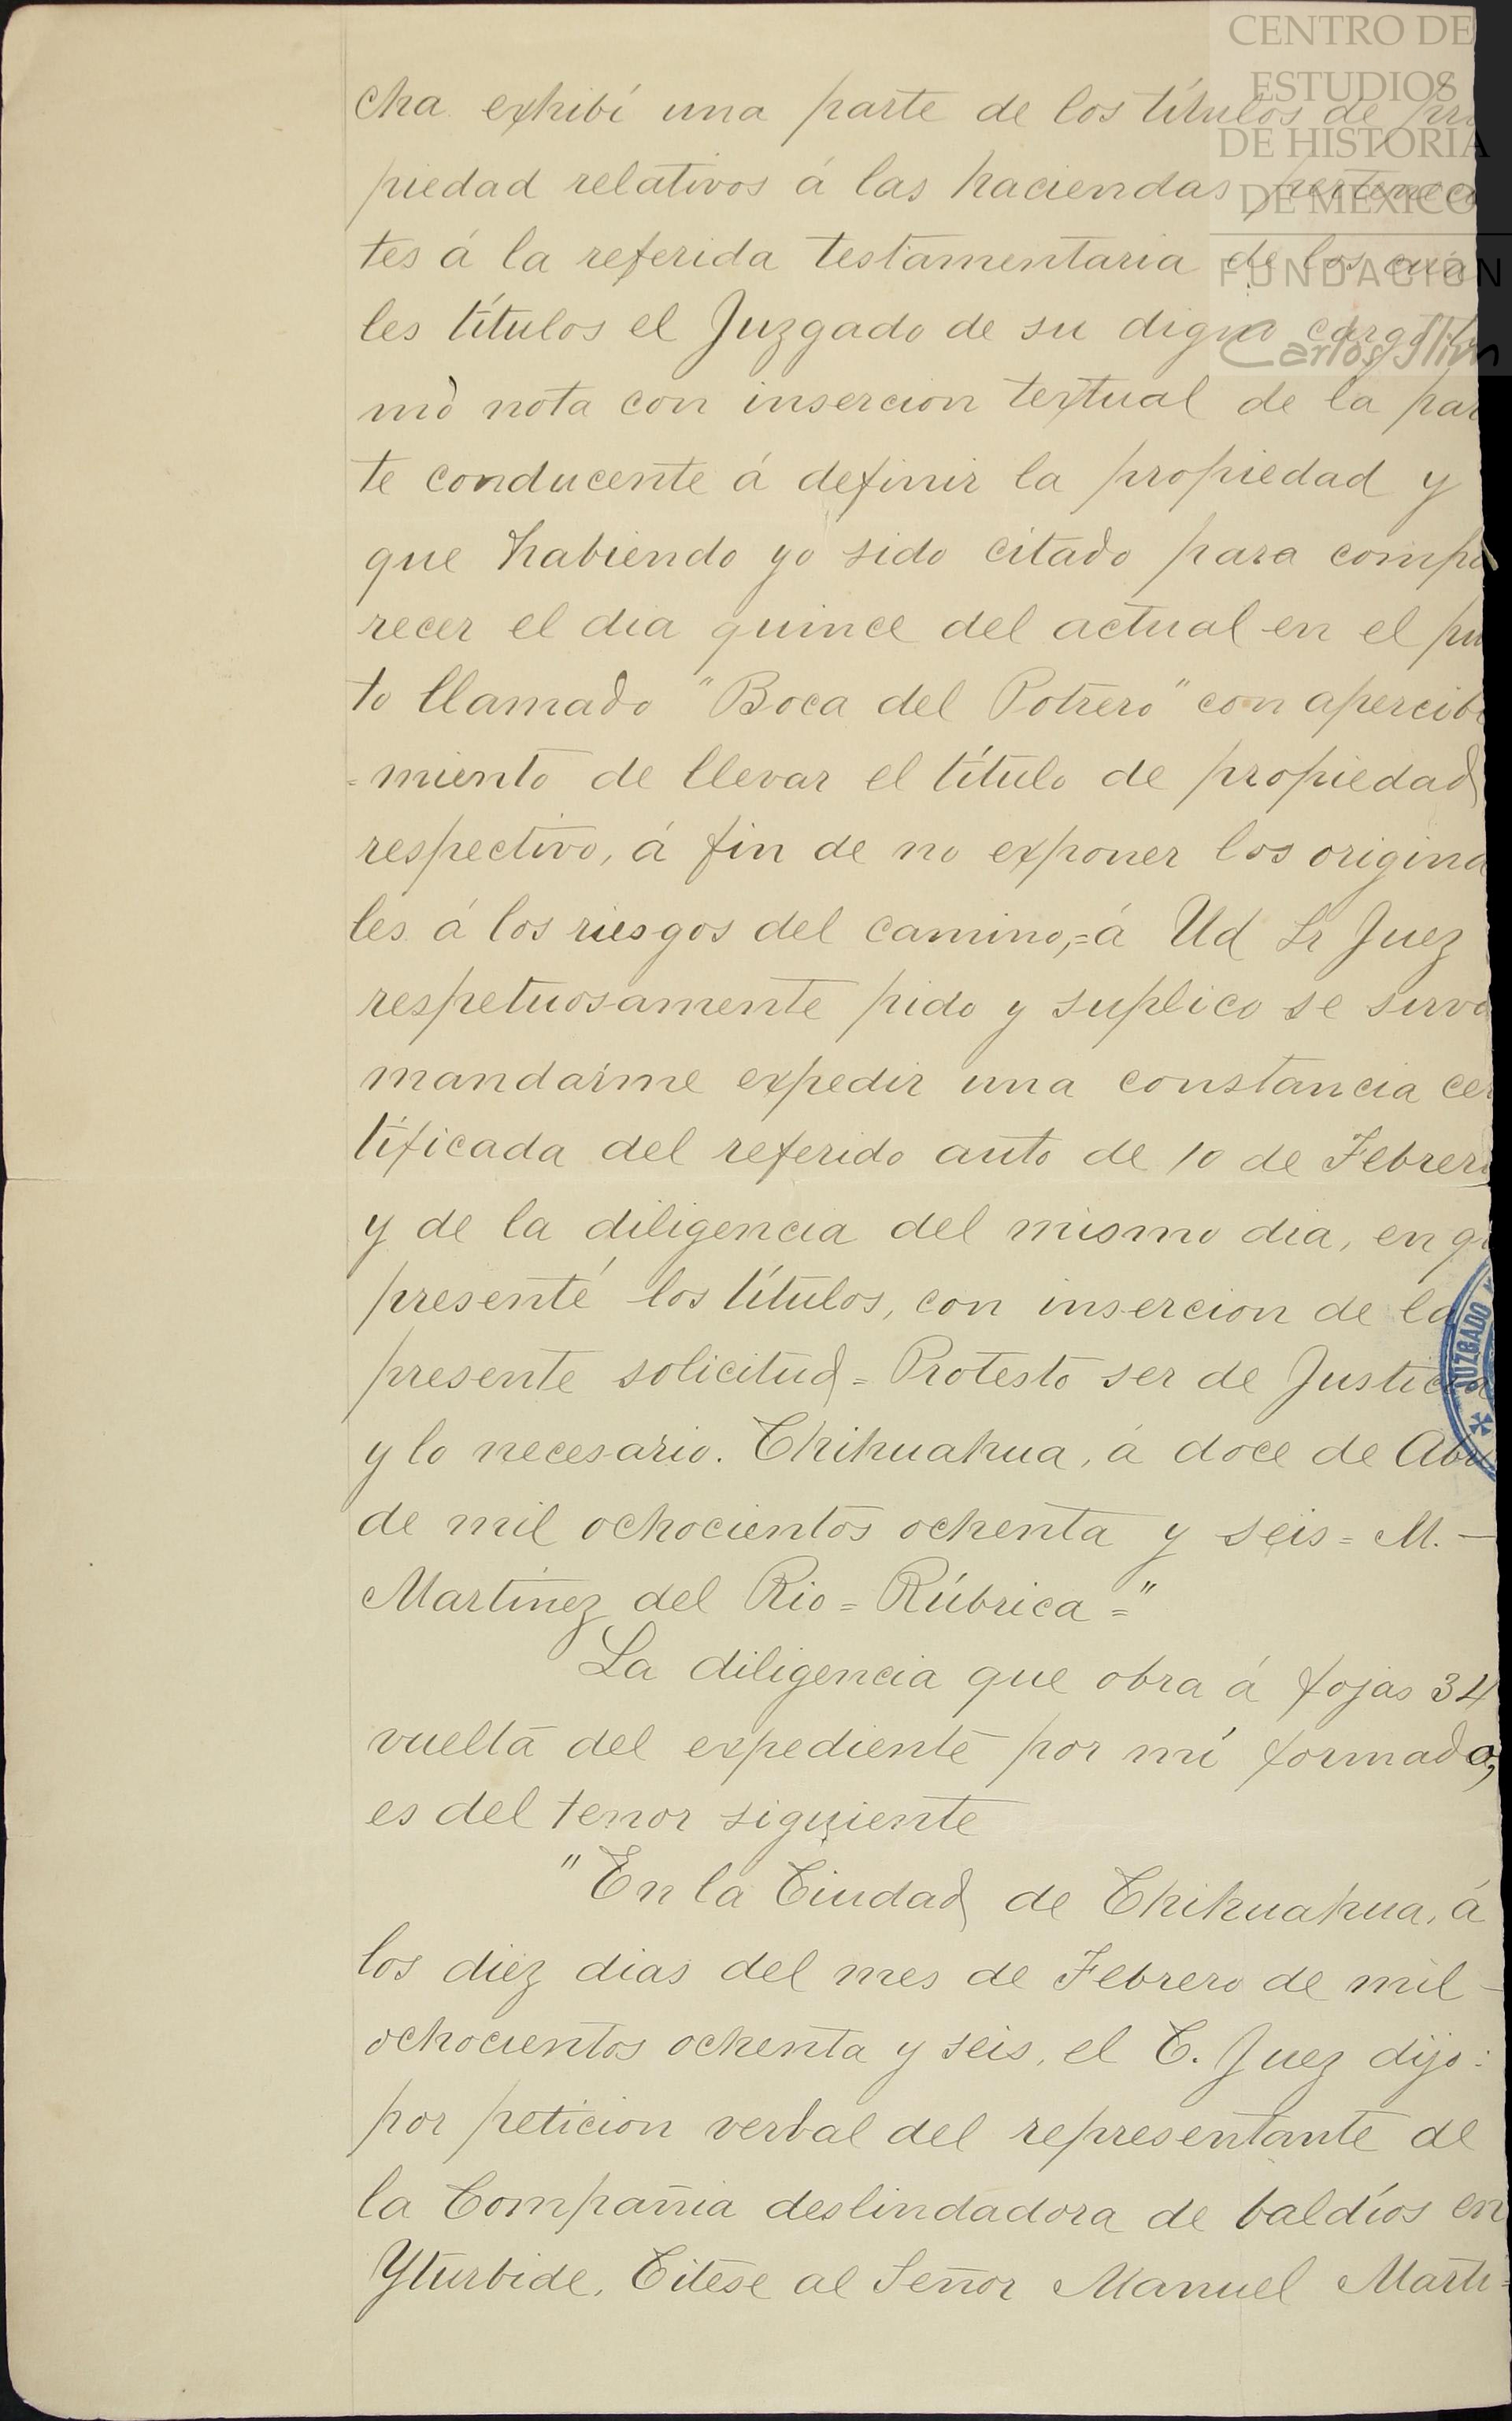 CENTRO DE
ESTUDIOS
DE HISTORIA
DE MÉXICO
FUNDACIÓN
Carlos Slim
cha exhibí una parte de los títulos de pro
piedad relativos á las haciendas pertenecen
tes á la referida testamentaria de los cua
les títulos el Juzgado de su digno cargo to
mó nota con insercion textual de la par
te conducente á definir la propiedad y
que habiendo yo sido citado para compa
recer el dia quince del actual en el pun
to llamado "Boca del Potrero" con apercibi
=miento de llevar el título de propiedad
respectivo, á fin de no exponer los origina
les á los riesgos del camino,=á Ud Sr Juez
respetuosamente pido y suplico se sirva
mandarme expedir una constancia cer
tificada del referido auto de 10 de Febrero
y de la diligencia del mismo dia, en que
presenté los títulos, con insercion de la
presente solicitud = Protesto ser de Justicia
y lo necesario. Chihuahua, á doce de Abril
de mil ochocientos ochenta y seis = M. —
Martinez del Rio = Rúbrica ="
La diligencia que obra á fojas 34
vuelta del expediente por mí formado,
es del tenor siguiente
"En la Ciudad de Chihuahua, á
los diez dias del mes de Febrero de mil —
ochocientos ochenta y seis, el C. Juez dijo:
por peticion verbal del representante de
la Compañia deslindadora de baldíos en
Yturbide, Citese al Señor Manuel Marti=
JUZGADO